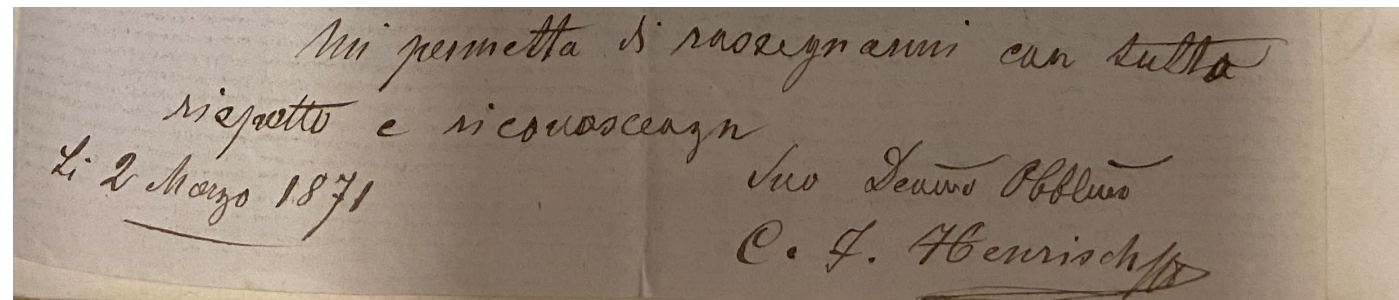 Mi permetta di rassegnarmi con tutto
rispetto e riconoscenza
Li 2 Marzo 1871
Suo Devmo Obblmo
C. F. Henrisch